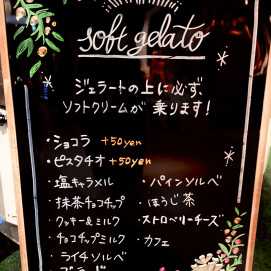 soft gelato
ジェラートの上に必ず、
ソフトクリームが 乗ります!
・ショコラ +50yen
・ピスタチオ +50yen
・塩キャラメル
・抹茶チョコチップ
・クッキー&ミルク
・チョコチップミルク
・ライチソルベ
・パインソルベ
・ほうじ茶
・ストロベリーチーズ
・カフェ